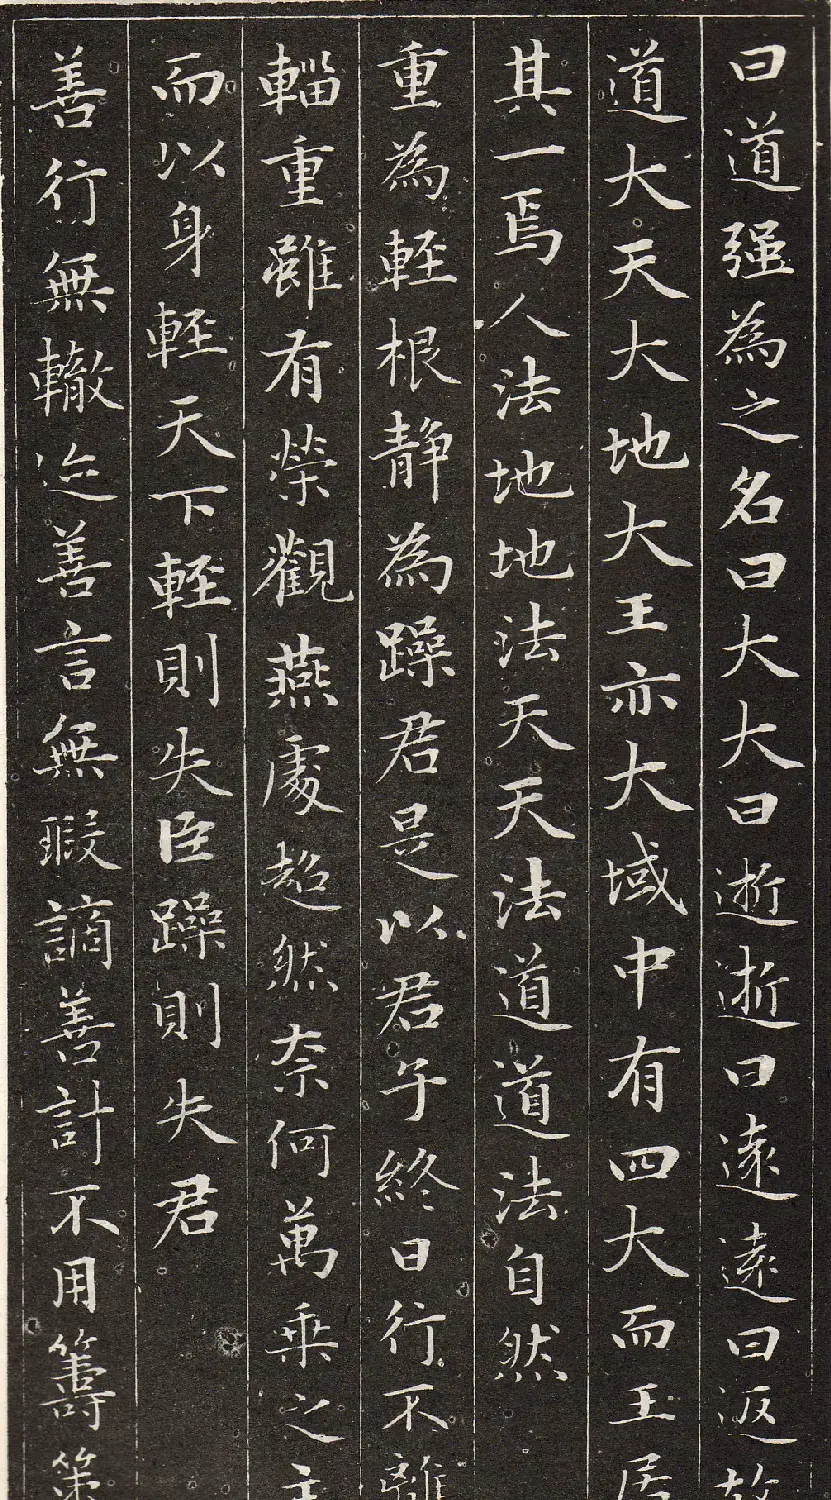 曰道强為之名曰大大曰逝逝曰遠遠曰返故
道大天大地大王亦大域中有四大而王居
其一焉人法地地法天天法道道法自然
重為輕根静為躁君是以君子終日行不離
輜重雖有榮觀燕處超然奈何萬乗之主
而以身輕天下輕則失臣躁則失君
善行無轍迹善言無瑕謫善計不用籌策